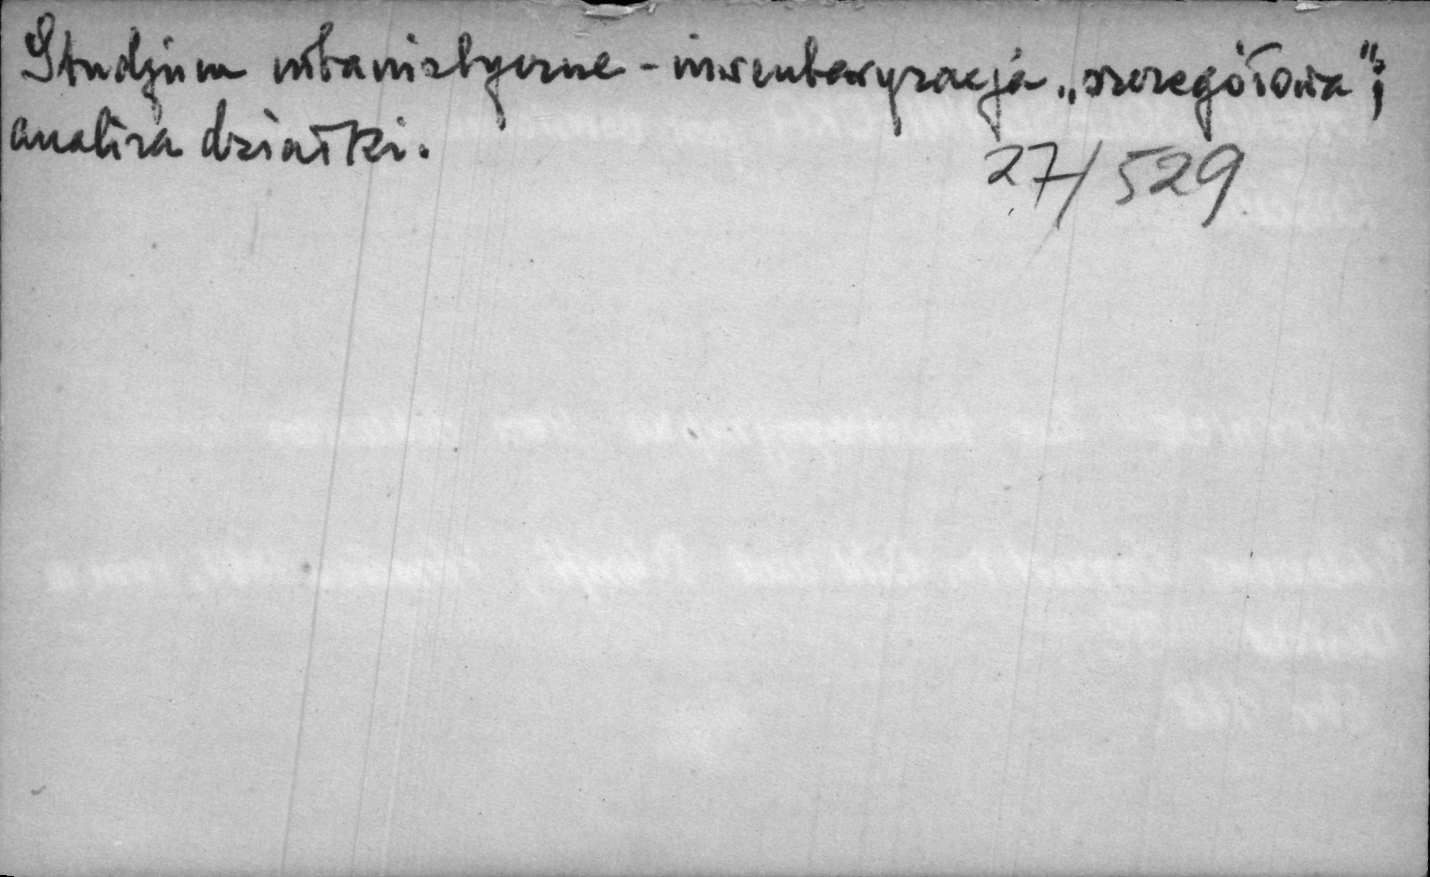 Studjum urbanistyczne - inwentaryzacja „szczegółowa”;
analiza działki.
27/529